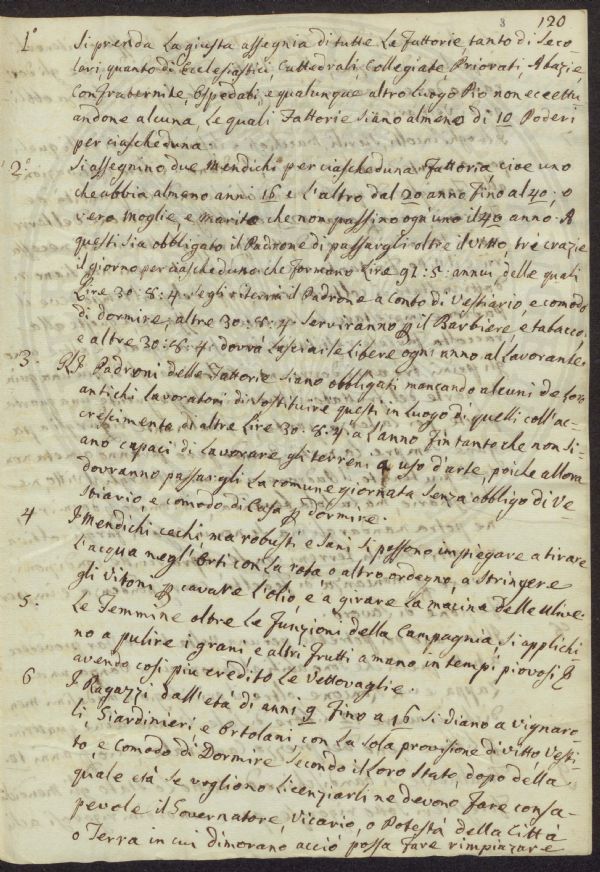 8 120
1° Si prenda La giusta assegnia di tutte Le Fattorie, tanto di Seco-
lari, quanto di Ecclesiastici, Cattedrali, Collegiate, Priorati, Abazie,
Confraternite, Ospedali, e qualunque altro Luogo Pio non eccettu-
andone alcuna, Le quali Fattorie siano almeno di 10 Poderi
per ciascheduna.
2° Si assegnino due Mendichi per ciascheduna Fattoria, cioè uno
che abbia almeno anni 16 e L'altro dal 20 anno Fino al 40; o
vero Moglie, e Marito che non passino ogn'uno il 40 anno. A
questi sia obbligato il Padrone di passargli oltre il vitto, trè crazie
il giorno per ciascheduno che formano Lire 91: 5: annui, delle quali
Lire 30: 8: 4. se gli riterrà il Padrone a conto di Vestiario, e comodo
di dormire; altre 30: 8: 4 serviranno p il Barbiere e tabacco,
e altre 30: 8: 4. dovrà Lasciarle Libere ogni anno al Lavorante.
3. Padroni delle Fattorie siano obbligati mancando alcuni de Loro
antichi Lavoratori di sostituire questi in Luogo di quelli coll'ac-
crescimento di altre Lire 30: 8: 4 a L'anno fin tanto che non si-
ano capaci di Lavorare gli terreni a uso d'arte, poiche allora
dovranno passargli La comune giornata senza obbligo di Ve
stiario, e comodo di Casa p dormire.
4 I Mendichi cechi ma robusti e sani si possono impiegare a tirare
L'acqua negl'Orti con La rota o altro ordegno, a stringere
gli Vitoni p cavare L'olio, e a girare La macina delle ulive.
5. Le Femmine oltre Le Funzioni della Campagnia, si applichi-
no a pulire i grani e altri frutti a mano in tempi piovosi p
avendo così più credito Le Vettovaglie.
6 I Ragazzi dall'età di anni 9 Fino a 16 si diano a Vignaro-
li, Giardinieri, e Ortolani con La sola provisione di vitto, Vesti-
to, e comodo di Dormire secondo il Loro stato, dopo della
quale età se vogliono Licenziarli ne devono fare consa-
pevole il Governatore, Vicario, o Potestà della Città
o Terra in cui dimorano acciò possa fare rimpiazare